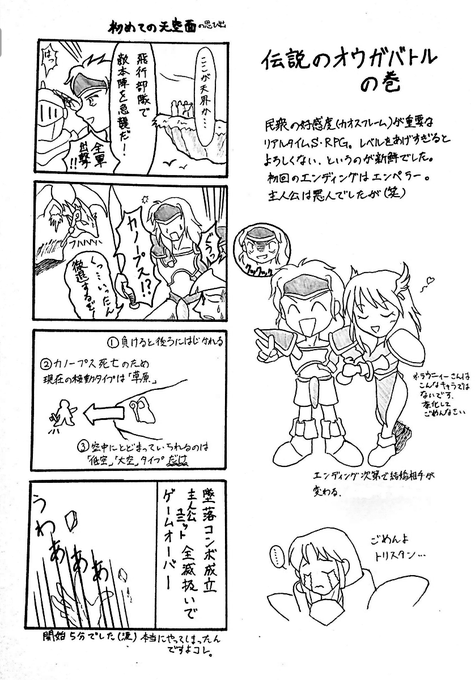 初めての天空面の思ひ出
ここが天界か…
飛行部隊で
敵本陣を急襲だ！
はっ
全軍
出撃!!
カノープス!?
ぐはっ
くっ…いったん
後退するぞ！
①負けると後ろにはじかれる
②カノープス死亡のため
現在の移動タイプは「草原」
③空中にとどまっていられるのは
「低空」「大空」タイプだけ
墜落コンボ成立
主人公ユニット全滅扱いで
ゲームオーバー
うわあぁあぁ
開始5分でした(涙)本当にやってしまったん
ですよコレ。
伝説のオウガバトル
の巻
民衆の好感度(カオスフレーム)が重要な
リアルタイムS・RPG。レベルをあげすぎると
よろしくない、というのが新鮮でした。
初回のエンディングはエンペラー。
主人公は悪人でしたが(笑)
クックックッ
※ラウニィーさんは
こんなキャラでは
ないです。
変化して
ごめんなさい
エンディング次第で結婚相手が
変わる。
ごめんよ
トリスタン…
……